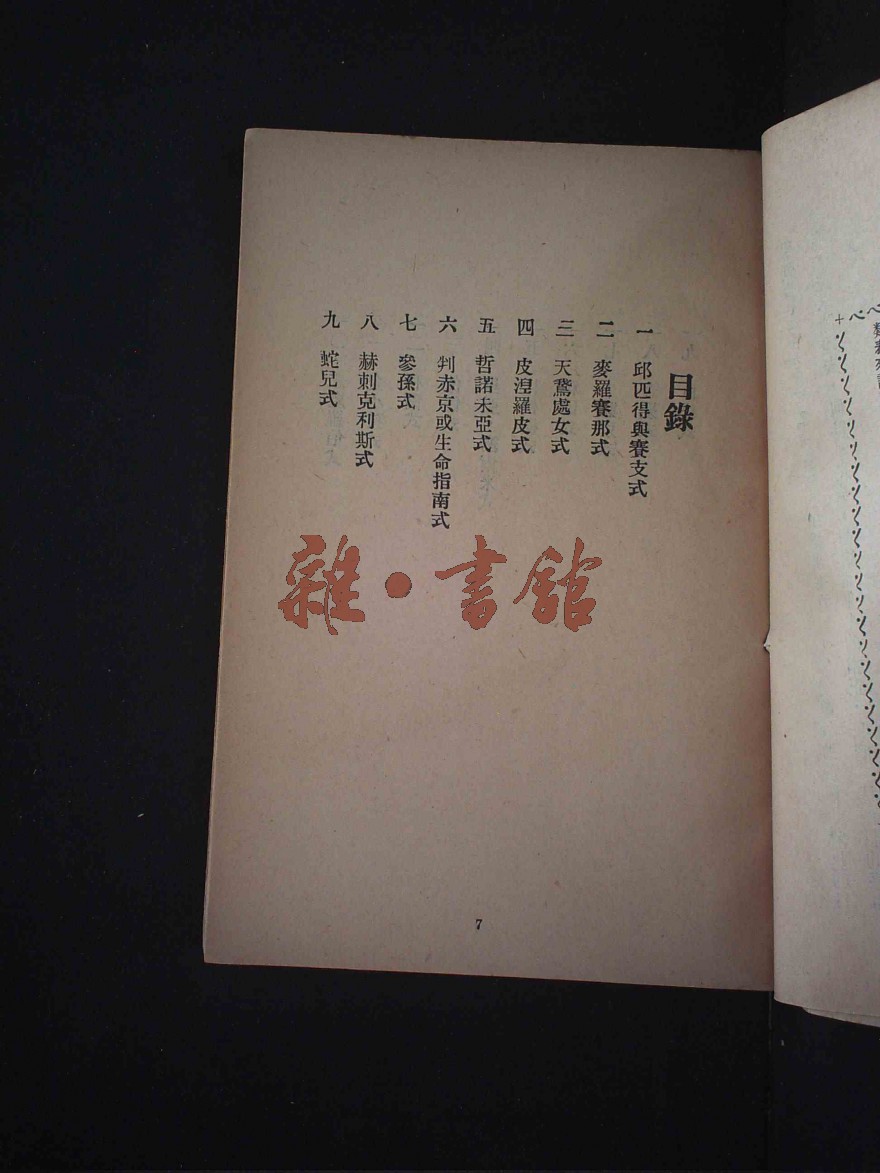 目錄
一 邱匹得與賽支式
二 麥羅賽那式
三 天鵞處女式
四 皮湼羅皮式
五 哲諾未亞式
六 判赤京或生命指南式
七 參孫式
八 赫刺克利斯式
九 蛇兒式
雜·書館
7